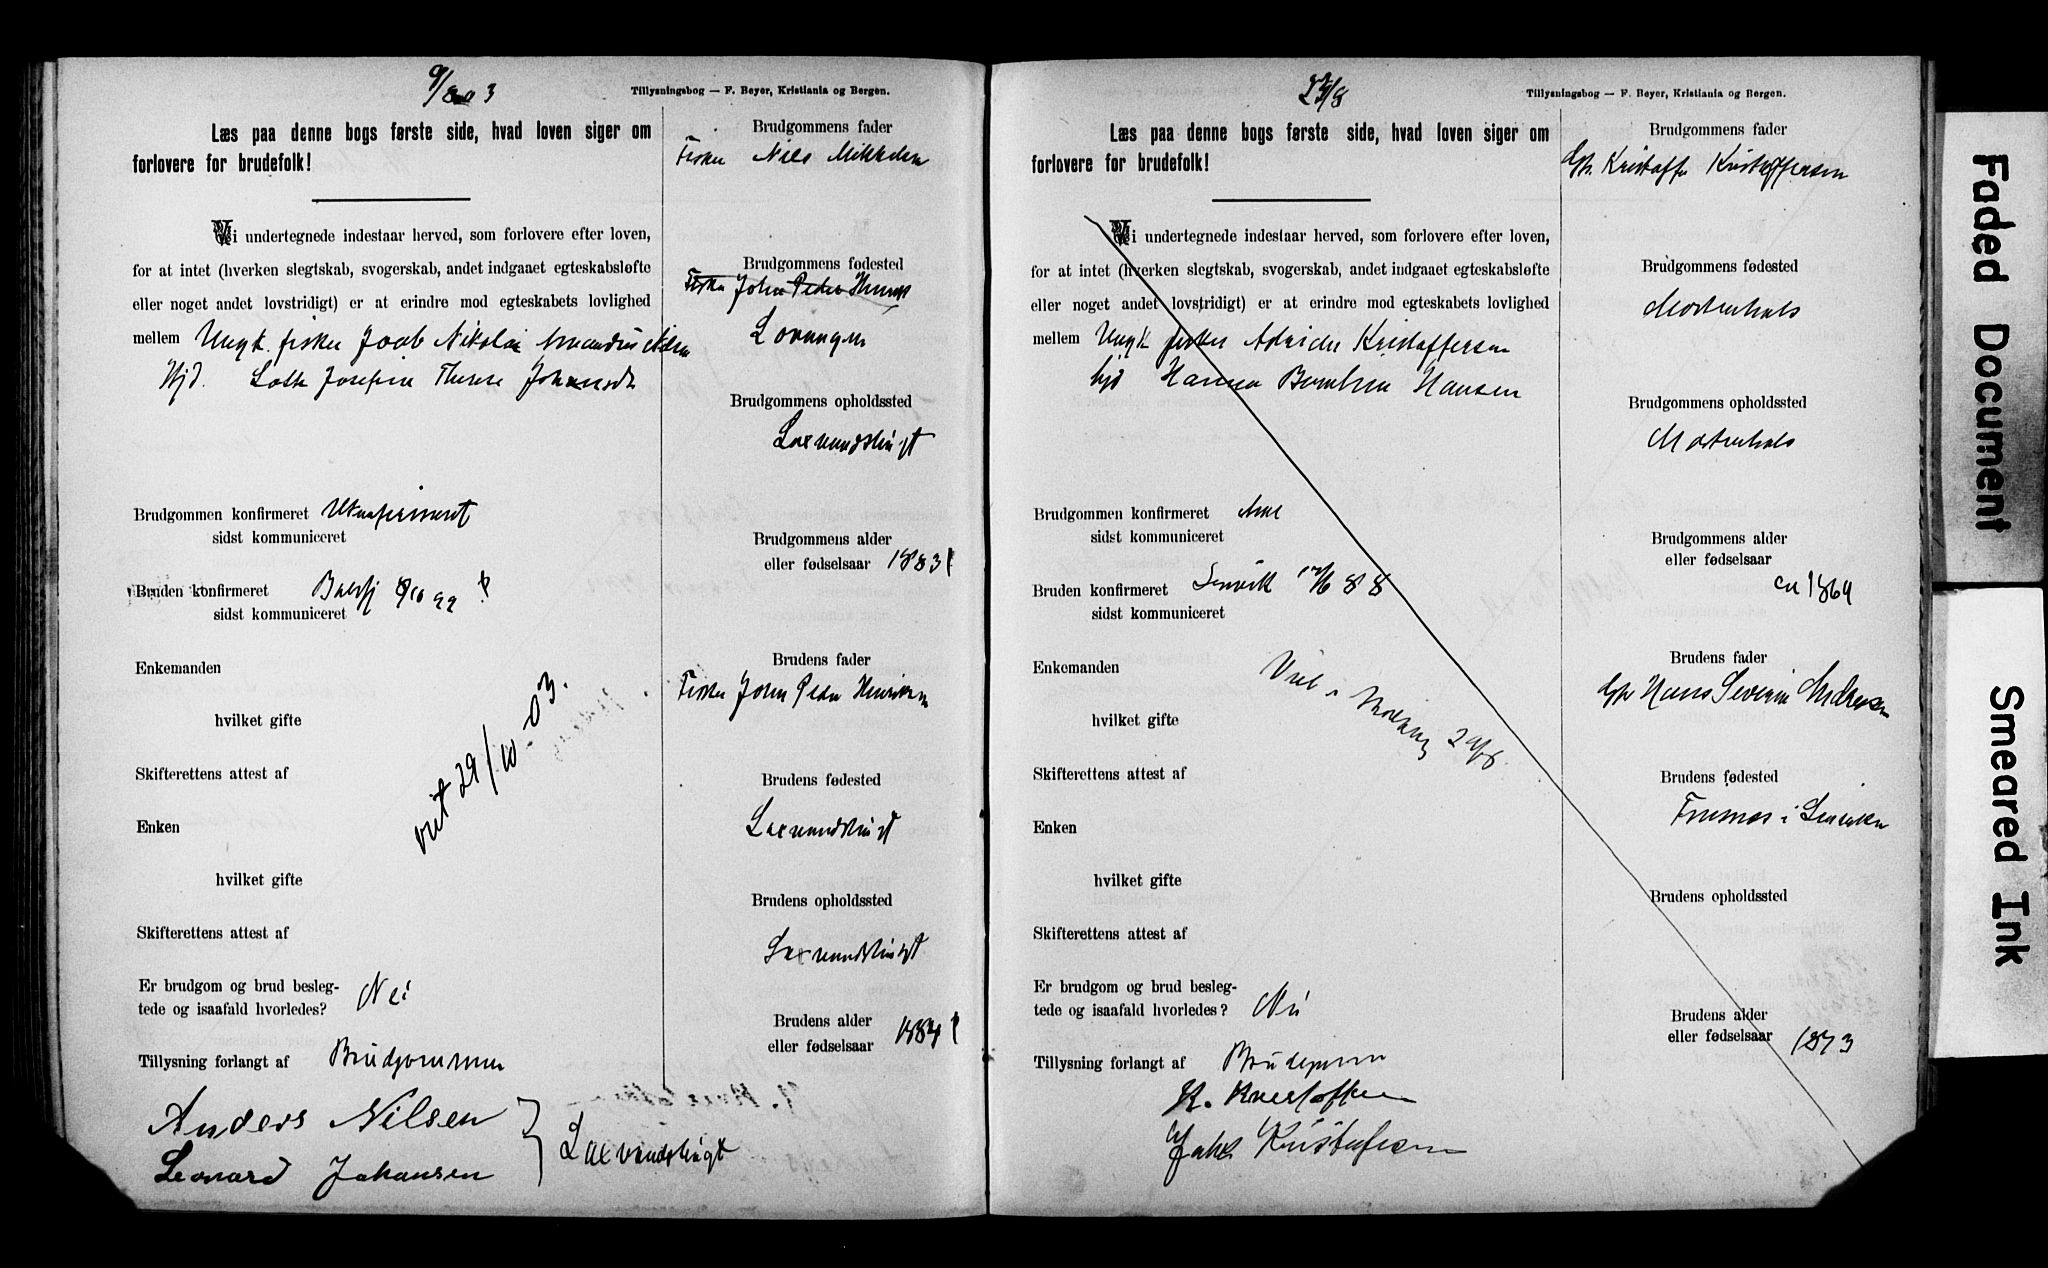 9/8 03
Tillysningsbog — F. Beyer, Kristiania og Bergen.
Læs paa denne bogs første side, hvad loven siger om
forlovere for brudefolk!
Vi undertegnede indestaar herved, som forlovere efter loven,
for at intet (hverken slegtskab, svogerskab, andet indgaaet egteskabsløfte
eller noget andet lovstridigt) er at erindre mod egteskabets lovlighed
mellem Ungk. fisker Joab Nikolai Amandus Nilsen
Pjd. Josefine Therese
Brudgommen konfirmeret Ukonfirmeret
sidst kommuniceret
Bruden konfirmeret Balsfj 8/10 99
sidst kommuniceret
Enkemanden
hvilket gifte
Skifterettens attest af
viet 29/10-03.
Enken
hvilket gifte
Skifterettens attest af
Er brudgom og brud besleg-
tede og isaafald hvorledes? Nei
Tillysning forlangt af Brudgommen
Anders Nilsen
Leonard Johansen
Laxvandslingt
Brudgommens fader
Fisker Nils Mikkelsen
Brudgommens fødested
Fisker John Peder
Brudgommens opholdssted
Laxvandslingt
Brudgommens alder
eller fødselsaar 1883
Brudens fader
Fisker John Peder Henriksen
Brudens fødested
Laxvandslingt
Brudens opholdssted
Laxvandslingt
Brudens alder
eller fødselsaar 1884
23/8
Tillysningsbog — F. Beyer, Kristiania og Bergen.
Læs paa denne bogs første side, hvad loven siger om
forlovere for brudefolk!
Vi undertegnede indestaar herved, som forlovere efter loven,
for at intet (hverken slegtskab, svogerskab, andet indgaaet egteskabsløfte
eller noget andet lovstridigt) er at erindre mod egteskabets lovlighed
mellem Ungk fisker Kristoffersen
pjd Hanna Hansen
Brudgommen konfirmeret
sidst kommuniceret
Bruden konfirmeret Lenvik 88
sidst kommuniceret
Enkemanden
Viet i
hvilket gifte
Skifterettens attest af
Enken
hvilket gifte
Skifterettens attest af
Er brudgom og brud besleg-
tede og isaafald hvorledes? Nei
Tillysning forlangt af Brudgommen
K. Kristoffersen
Kristofersen
Brudgommens fader
Gbr. Kristoffer Kristoffersen
Brudgommens fødested
Mortenhals
Brudgommens opholdssted
Mortenhals
Brudgommens alder
eller fødselsaar
1864
Brudens fader
Gbr Hans Severin Andreassen
Brudens fødested
Brudens opholdssted
Brudens alder
eller fødselsaar 1873
Faded Document
Smeared Ink